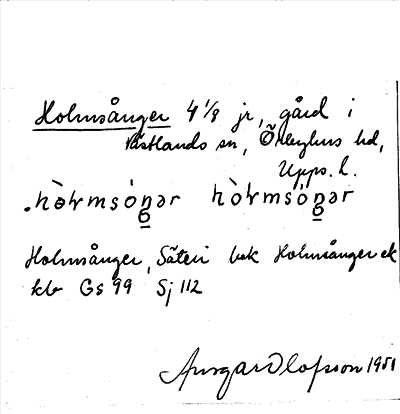 Holmsånger 4 1/8 jr, gård i
Västlands sn, Örbyhus hd,
Upps. l.
hòɫmsóŋər hòɫmsóŋər
Holmsånger, Säteri bek Holmsånger ek
kb Gs 99 Sj 112
Ansgar Olofsson 1951